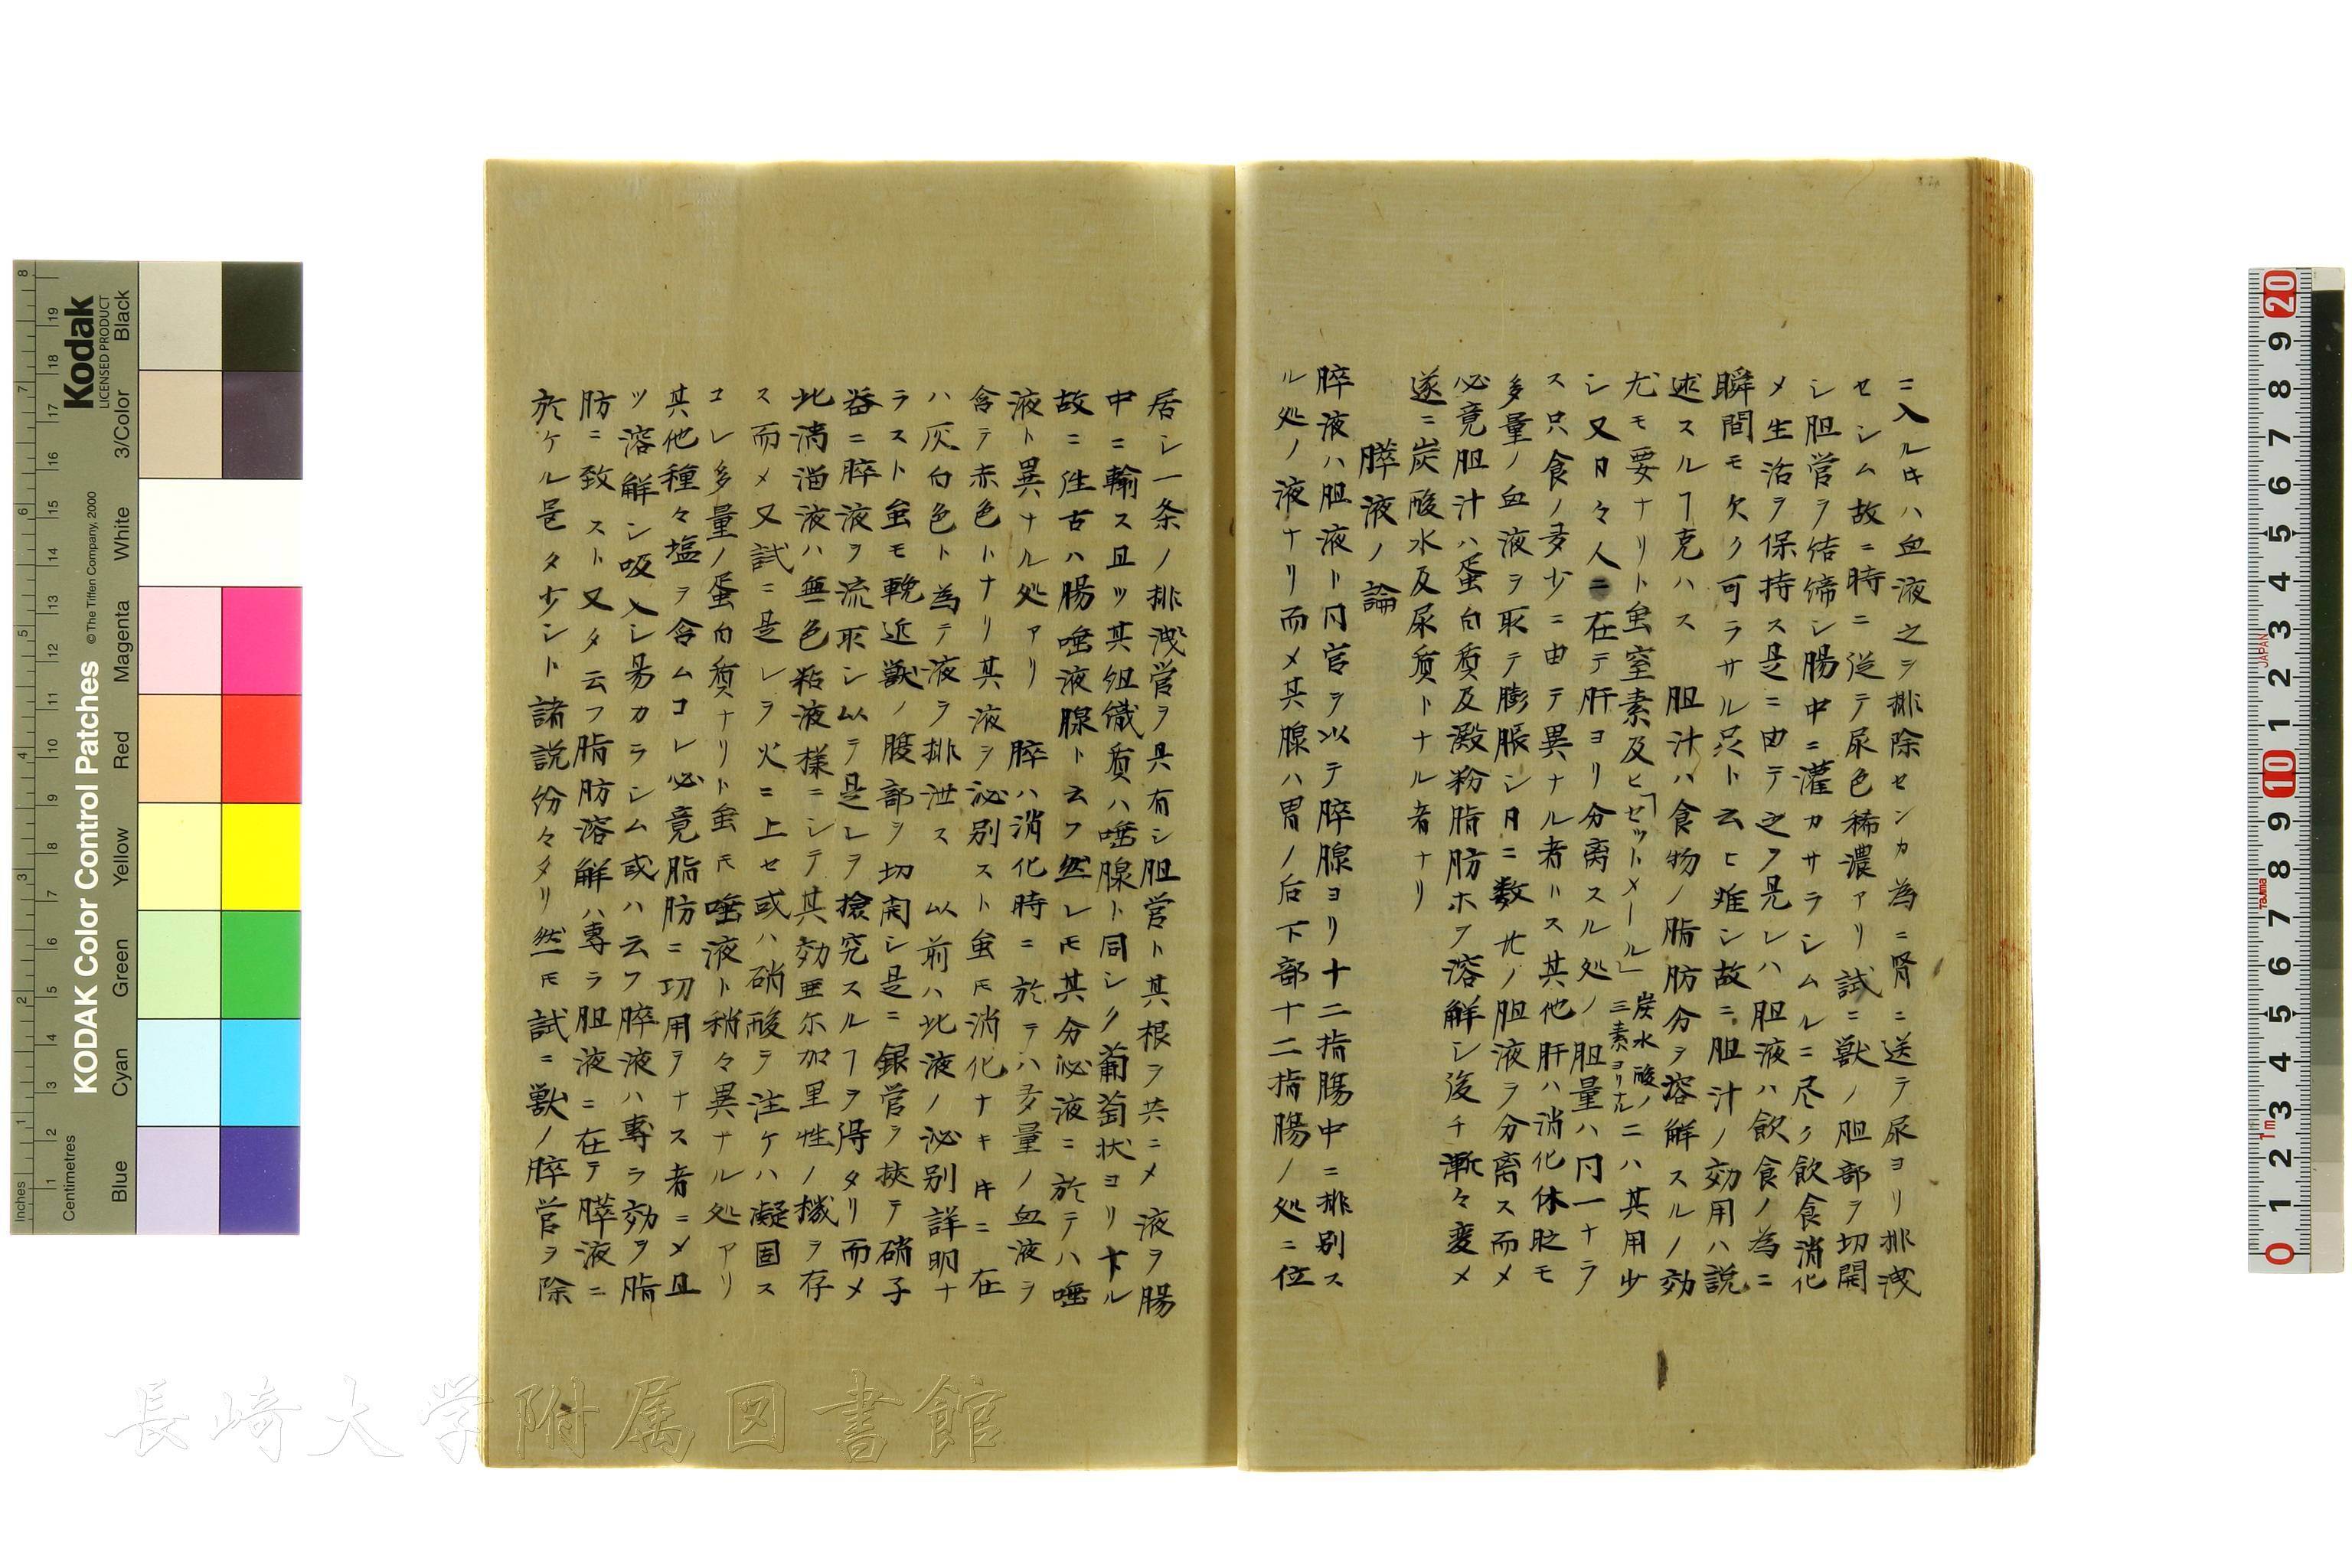 ニ入ルキハ血液之ヲ排除センカ為ニ腎ニ送テ尿ヨリ排洩
セシム故ニ時ニ従テ尿色稀濃アリ試ニ獣ノ胆部ヲ切開
シ胆管ヲ結締シ腸中ニ灌カサラシムルニ尽ク飲食消化
メ生活ヲ保持ス是ニ由テ之ヲ見レハ胆液ハ飲食ノ為ニ
瞬間モ欠ク可ラサル具ト云ヒ難シ故ニ胆汁ノ効用ハ説
述スルヿ克ハス 胆汁ハ食物ノ脂肪分ヲ溶解スルノ効
尤モ要ナリト虽窒素及ヒ「セツトメール」炭水酸ノ三素ヨリナルニハ其用少
シ又日々人ニ在テ肝ヨリ分离スル処ノ胆量ハ冋一ナラ
ス只食ノ多少ニ由テ異ナル者ハス其他肝ハ消化休眨モ
多量ノ血液ヲ取テ膨脹シ日ニ数廿ノ胆液ヲ分离ス而メ
必竟胆汁ハ蛋白质及澱粉脂肪ホヲ溶解シ後チ漸々変メ
遂ニ炭酸水及尿质トナル者ナリ
膵液ノ論
膟液ハ胆液ト冋官ヲ以テ膟腺ヨリ十二指腸中ニ排別ス
ル処ノ液ナリ而メ其腺ハ胃ノ后下部十二指腸ノ処ニ位
居シ一条ノ排洩管ヲ具有シ胆管ト其根ヲ共ニメ液ヲ腸
中ニ輸ス且ツ其组織质ハ唾腺ト同シク葡萄状ヨリ下ル
故ニ往古ハ腸唾液腺ト云フ然レ𪜈其分泌液ニ於テハ唾
液ト異ナル処アリ 膟ハ消化時ニ於テハ多量ノ血液ヲ
含テ赤色トナリ其液ヲ泌别スト虽𪜈消化ナキ牛ニ在
ハ灰白色ト為テ液ヲ排泄ス 以前ハ此液ノ泌别詳明ナ
ラスト虽モ輓近獣ノ腹部ヲ切開シ是ニ銀管ヲ挾テ硝子
器ニ膟液ヲ流取シ以テ是レヲ搶究スルヿヲ得タリ而メ
此漓溜液ハ無色粘液様ニシテ其効亜尓加里性ノ機ヲ存
ス而メ又試ニ是レヲ火ニ上セ或ハ硝酸ヲ注ケハ凝固ス
コレ多量ノ蛋白质ナリト虽𪜈唾液ト稍々異ナル処アリ
其他種々塩ヲ含ムコレ必竟脂肪ニ功用ヲナス者ニメ且
ツ溶解シ吸入シ易カラシム或ハ云フ膟液ハ專ラ効ヲ脂
肪ニ致スト又タ云フ脂肪溶解ハ專ラ胆液ニ在テ膵液ニ
於ケル尾タ少シト諸説紛々タリ然𪜈試ニ獣ノ膟管ヲ除
長崎大学附属図書館
KODAK Color Control Patches
© The Tiffen Company, 2000
Kodak
LICENSED PRODUCT
Blue Cyan Green Yellow Red Magenta White 3/Color Black
Inches
Centimetres
JAPAN
Tajima